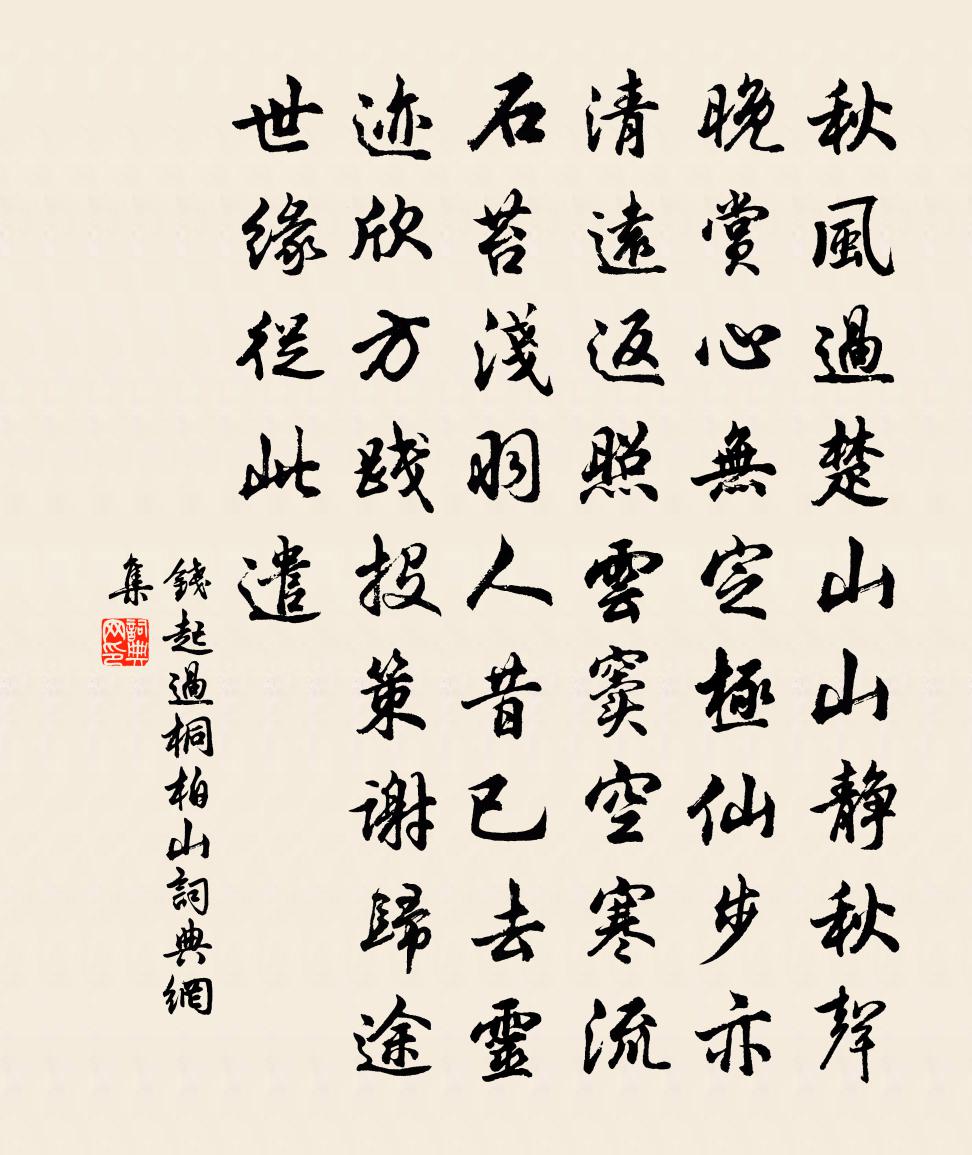 秋風過楚山山静秋聲
晚賞心無定極仙步亦
清遠返照雲竇空寒流
石苔淺羽人昔已去靈
迹欣方踐投策謝歸途
世緣從此遣
錢起過桐柏山詞典網
集
詞典网印